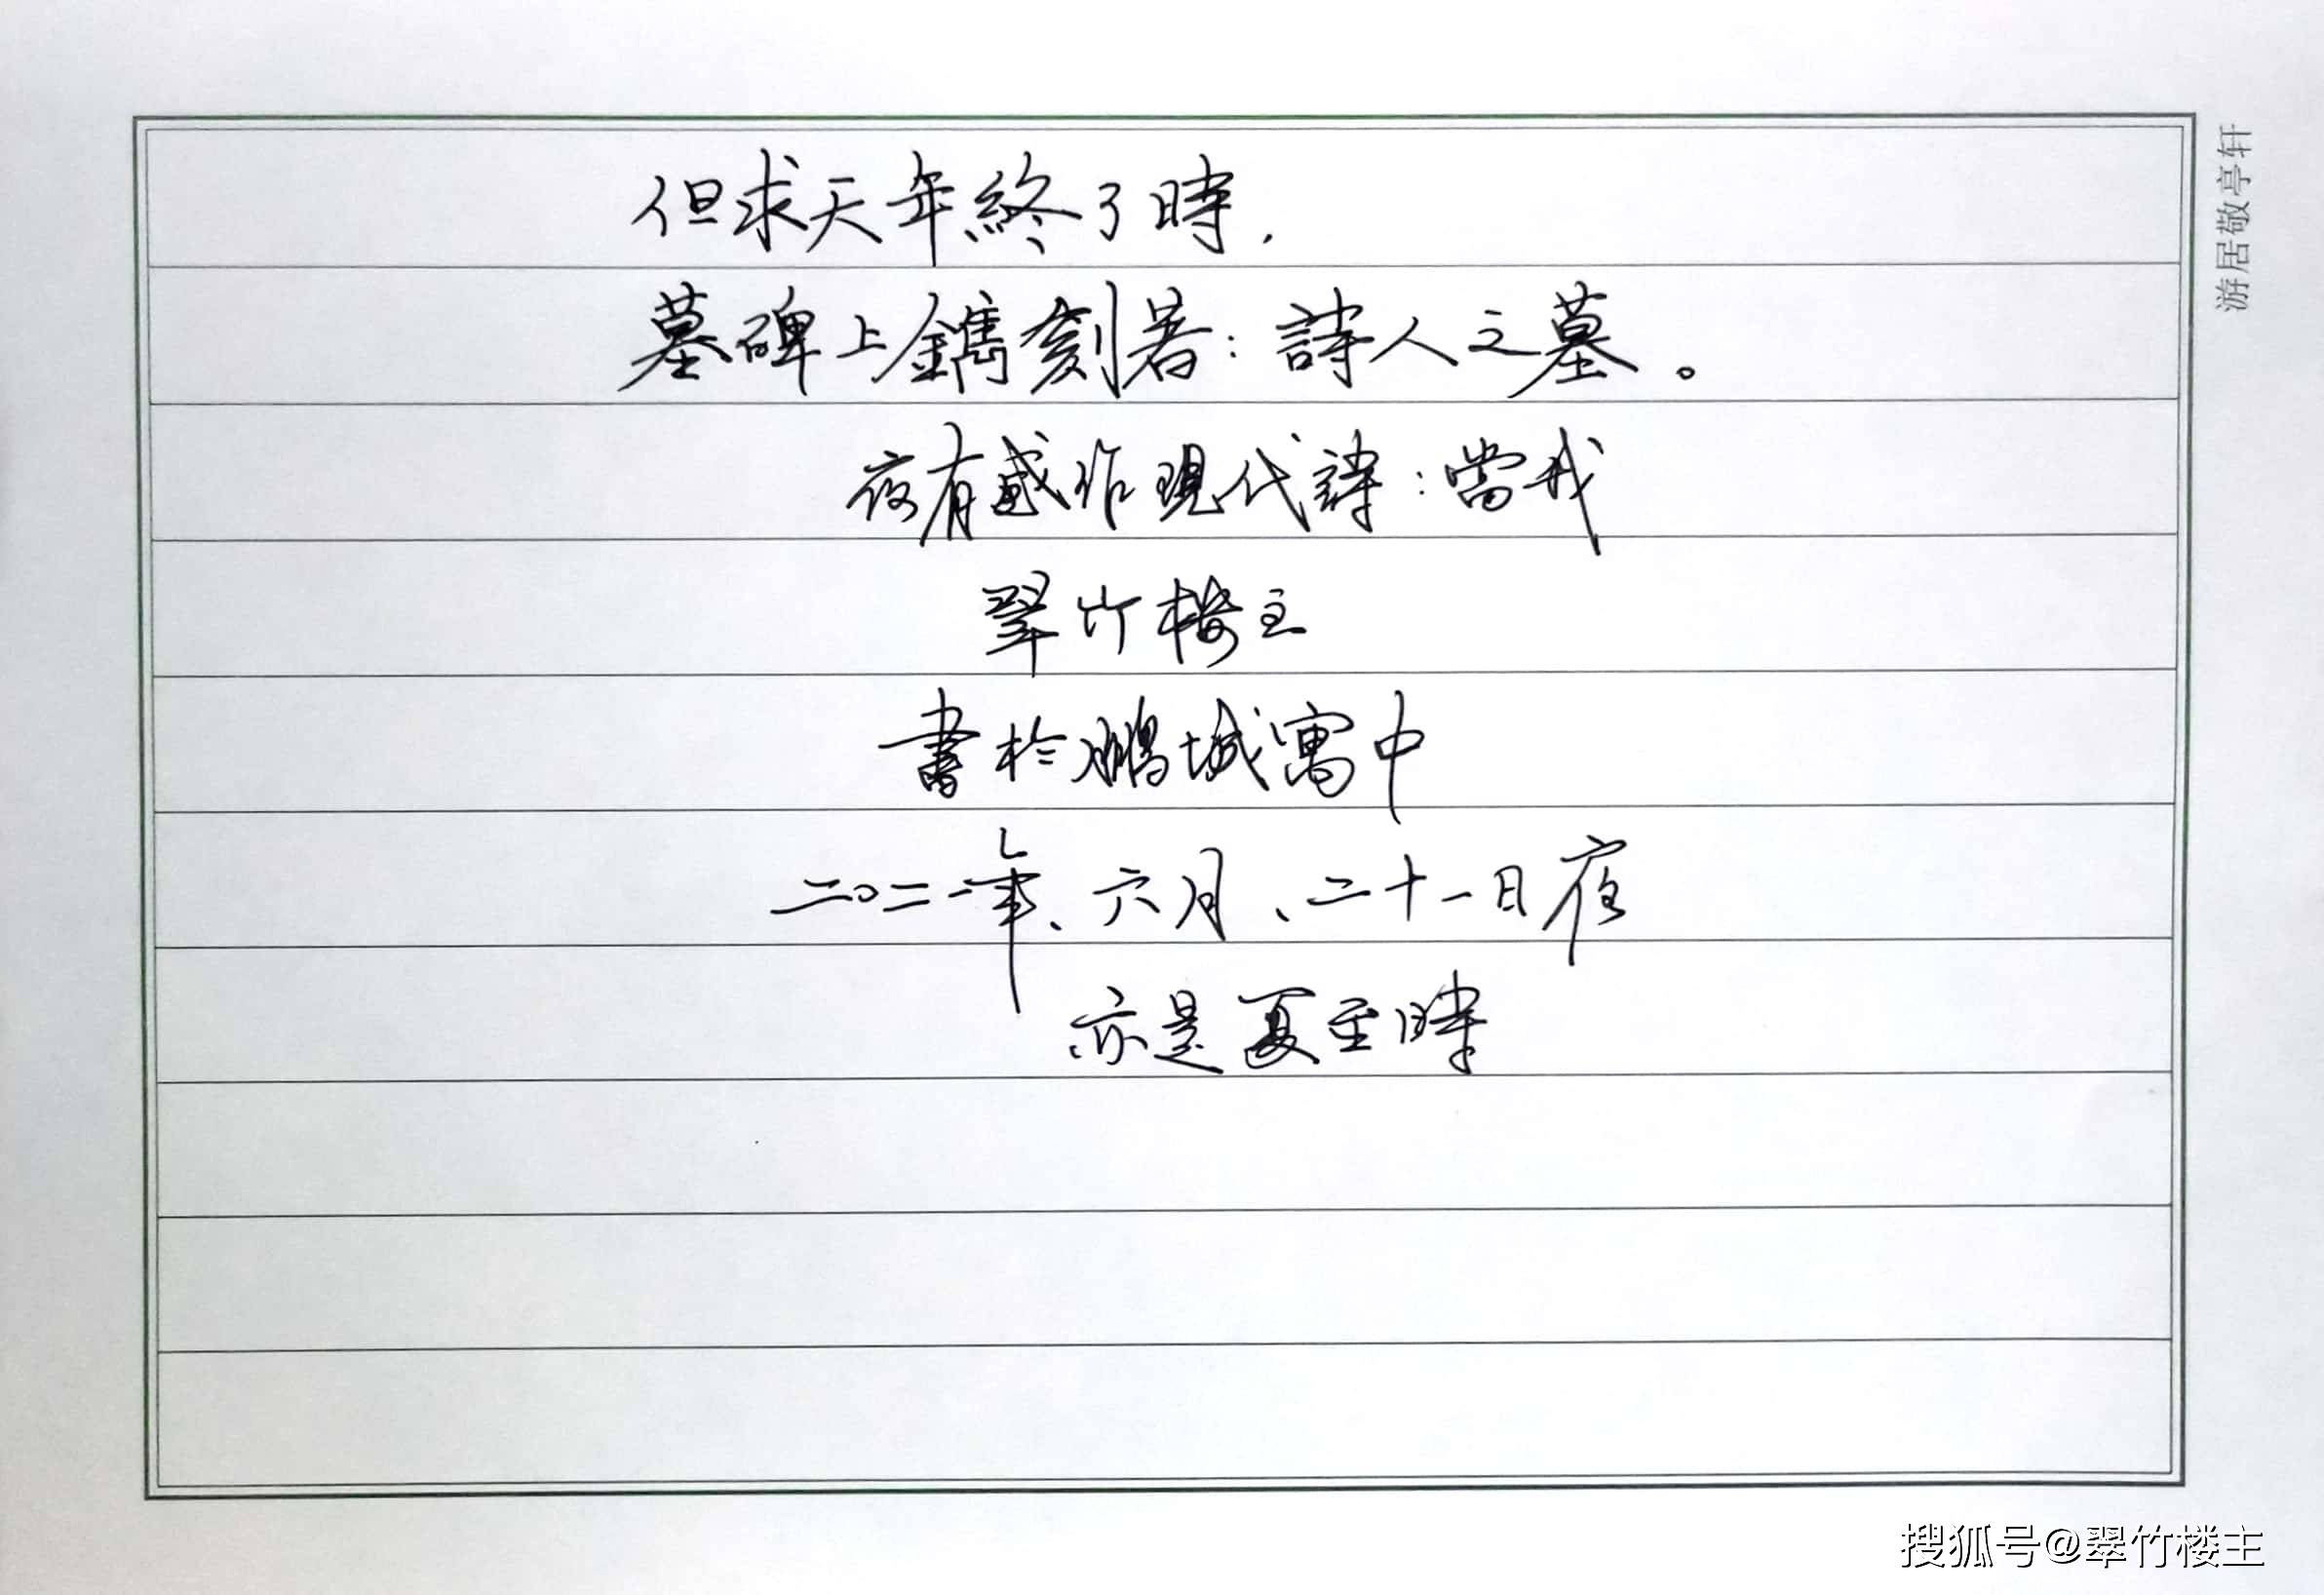 但求天年終了時，
墓碑上鐫刻著：詩人之墓。
夜有感作現代詩：當我
翠竹楼主
書於鵬城寓中
二〇二一年、六月、二十一日夜
亦是夏至時
游居敬亭轩
搜狐号@翠竹楼主